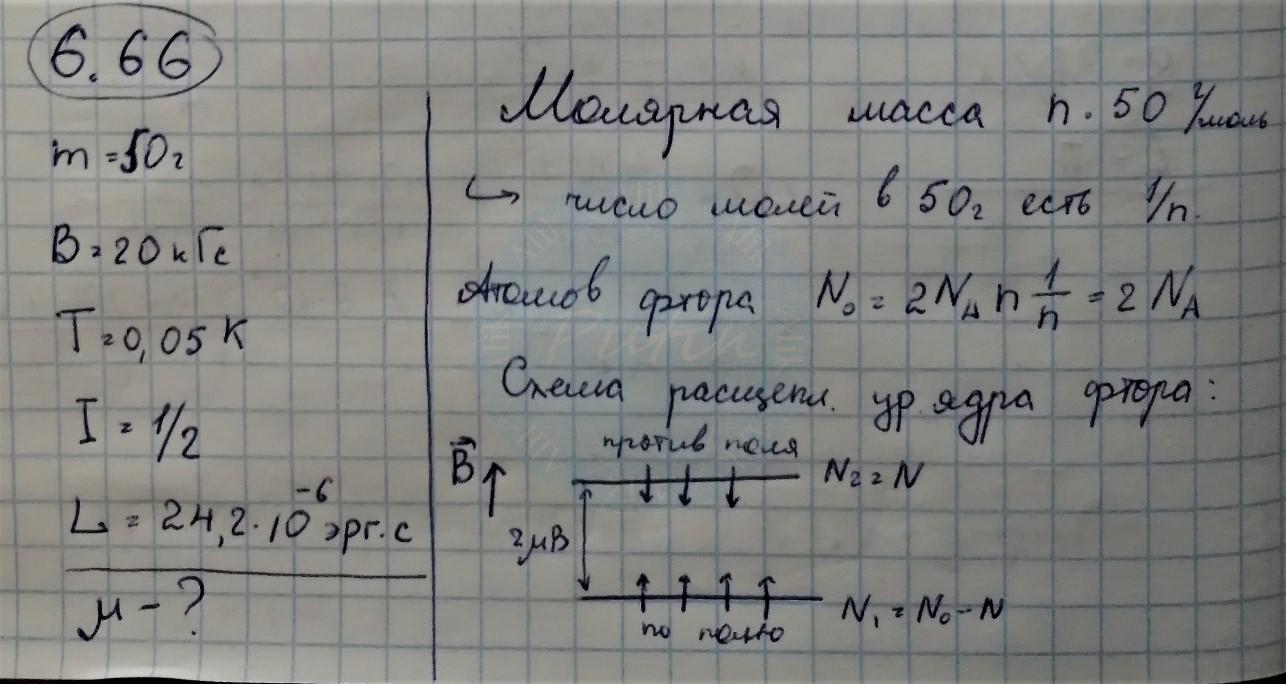 6.66
m = 50г
B = 20 кГс
T = 0,05 К
I = 1/2
L = 24,2·10⁻⁶ эрг·с
μ - ?
Молярная масса n·50 г/моль
↳ число молей в 50г есть 1/n.
Атомов фтора N₀ = 2N_A n 1/n = 2N_A
Схема расщепл. ур. ядра фтора:
против поля
B⃗ ↑
N₂ = N
2μB
N₁ = N₀ - N
по полю
Putin